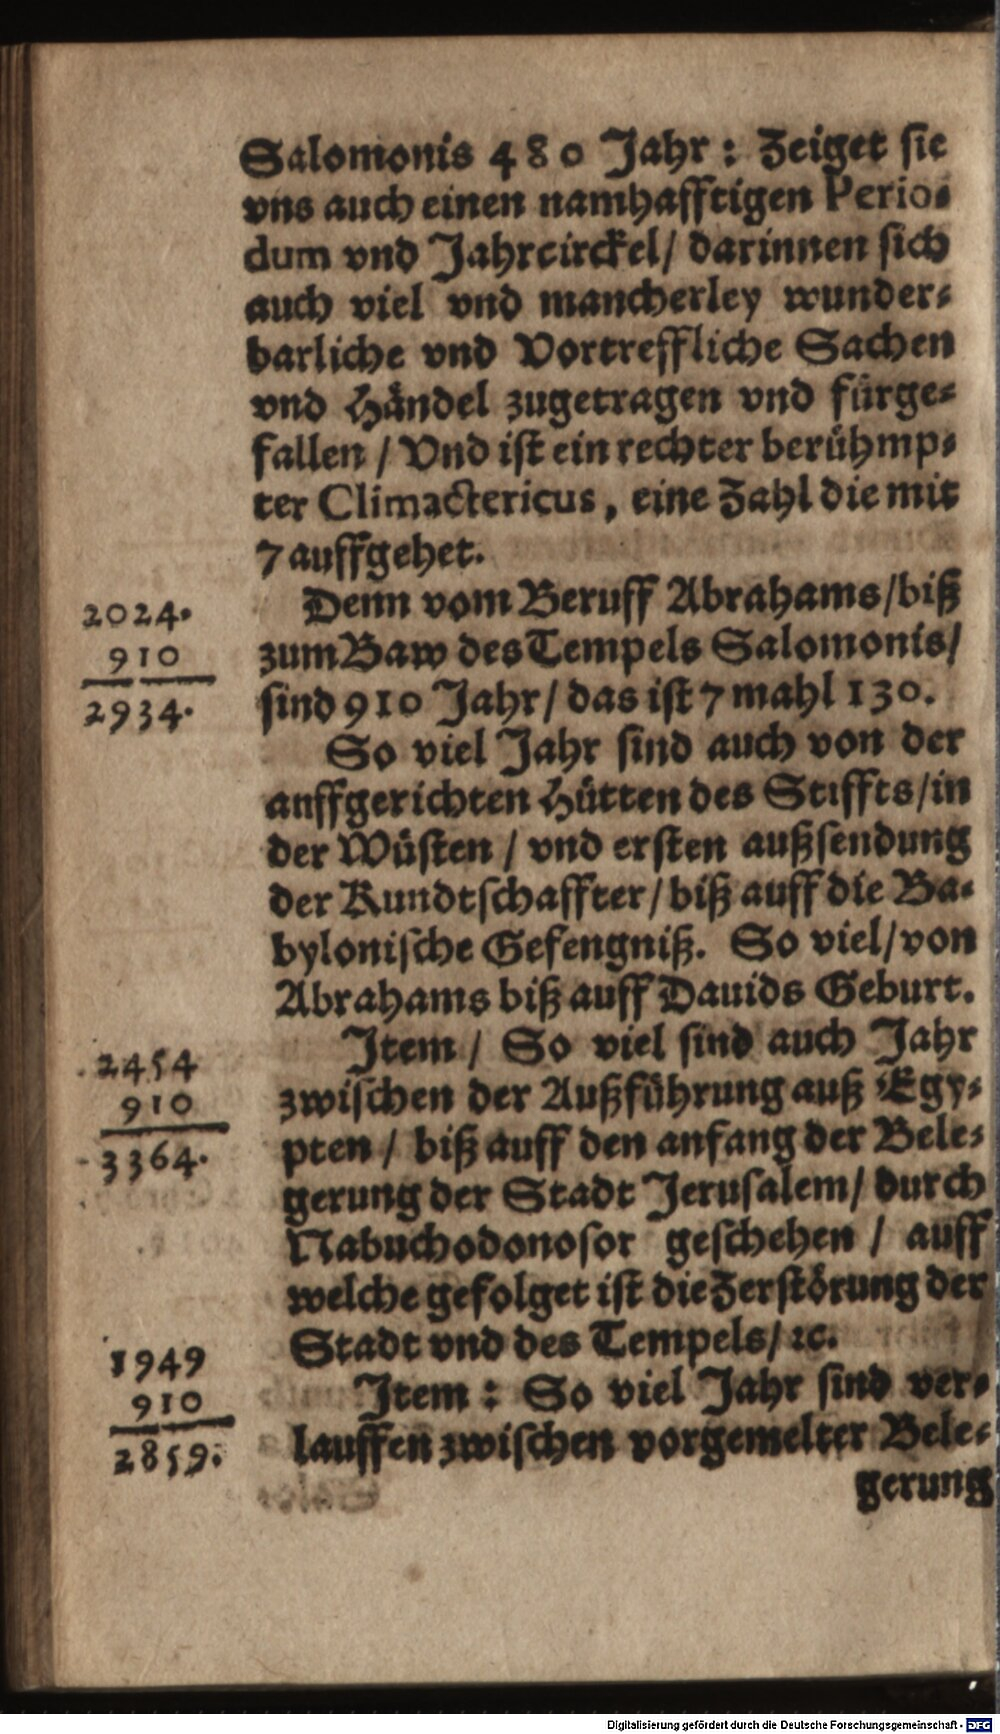 Salomonis 480 Jahr: Zeiget sie
vns auch einen namhafftigen Perio-
dum vnd Jahrcirckel/ darinnen sich
auch viel vnd mancherley wunder-
barliche vnd Vortreffliche Sachen
vnd Händel zugetragen vnd fürge-
fallen / Vnd ist ein rechter berühmp-
ter Climactericus, eine Zahl die mit
7 auffgehet.
Denn vom Beruff Abrahams/biß
zum Baw des Tempels Salomonis/
sind 910 Jahr/ das ist 7 mahl 130.
2024.
910
2934.
So viel Jahr sind auch von der
anffgerichten Hütten des Stiffts/in
der Wüsten / vnd ersten außsendung
der Kundtschaffter/ biß auff die Ba-
bylonische Gefengniß. So viel/von
Abrahams biß auff Dauids Geburt.
Item / So viel sind auch Jahr
zwischen der Außführung auß Egy-
pten / biß auff den anfang der Bele-
gerung der Stadt Jerusalem/ durch
Nabuchodonosor geschehen / auff
welche gefolget ist die Zerstörung der
Stadt vnd des Tempels/ ꝛc.
2454
910
3364.
Item : So viel Jahr sind ver-
lauffen zwischen vorgemelter Bele-
gerung
1949
910
2859.
Digitalisierung gefördert durch die Deutsche Forschungsgemeinschaft - DFG